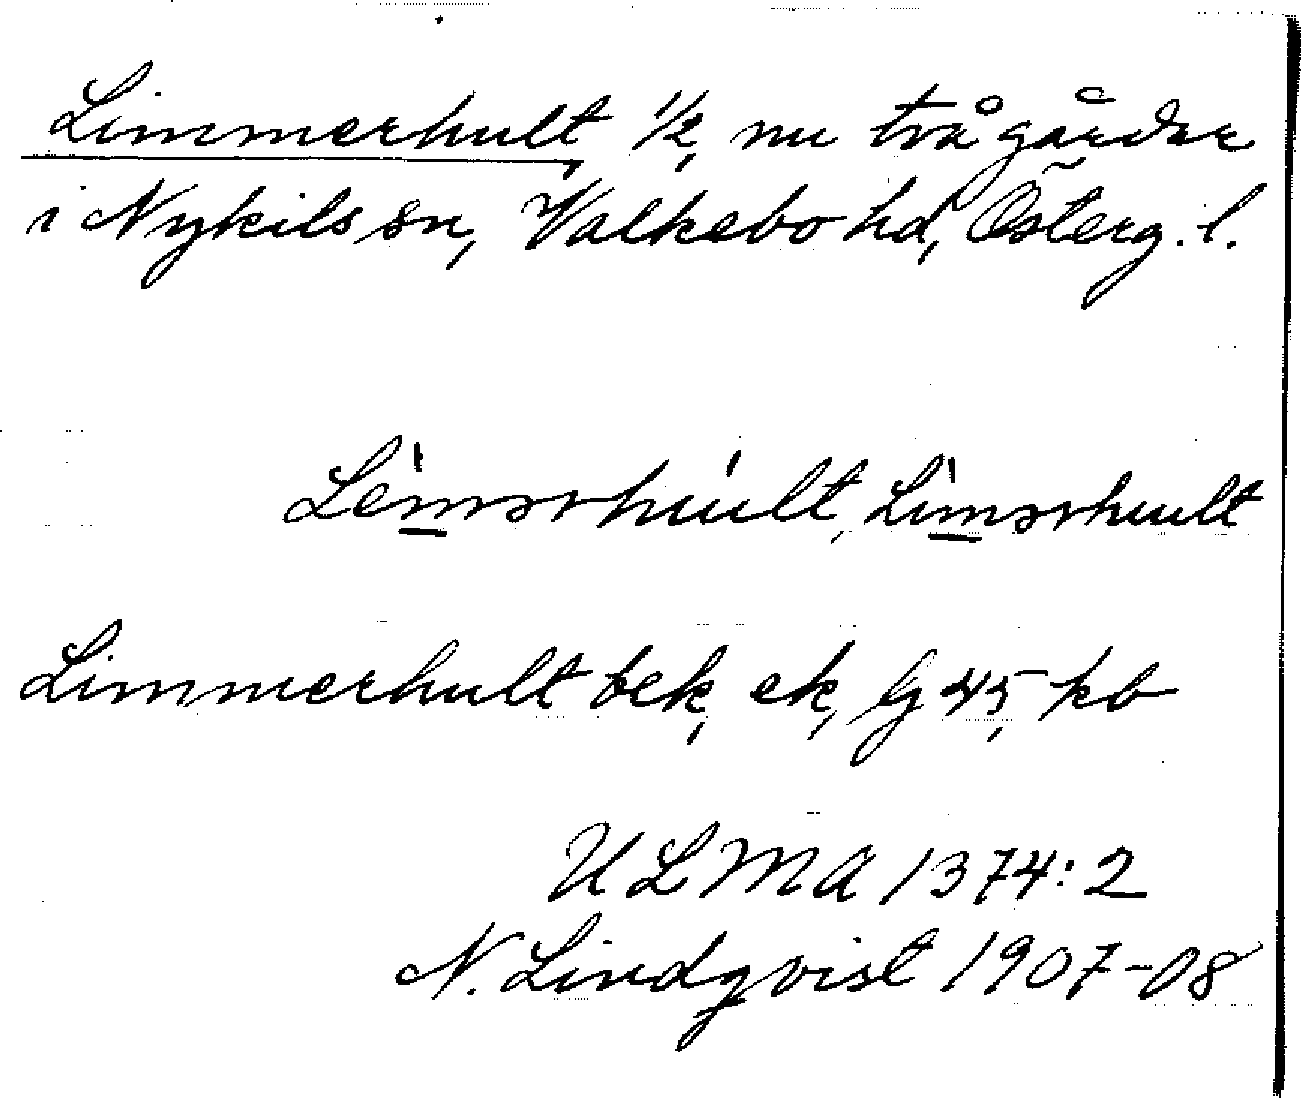 Limmerhult, 1/2, nu två gårdar
i Nykils sn, Valkebo hd, Österg. l.
Lèmərhúult, Lìmərhuult
Limmerhult bek, ek, Gj 45, kb
ULMA 1374:2
N. Lindqvist 1907-08